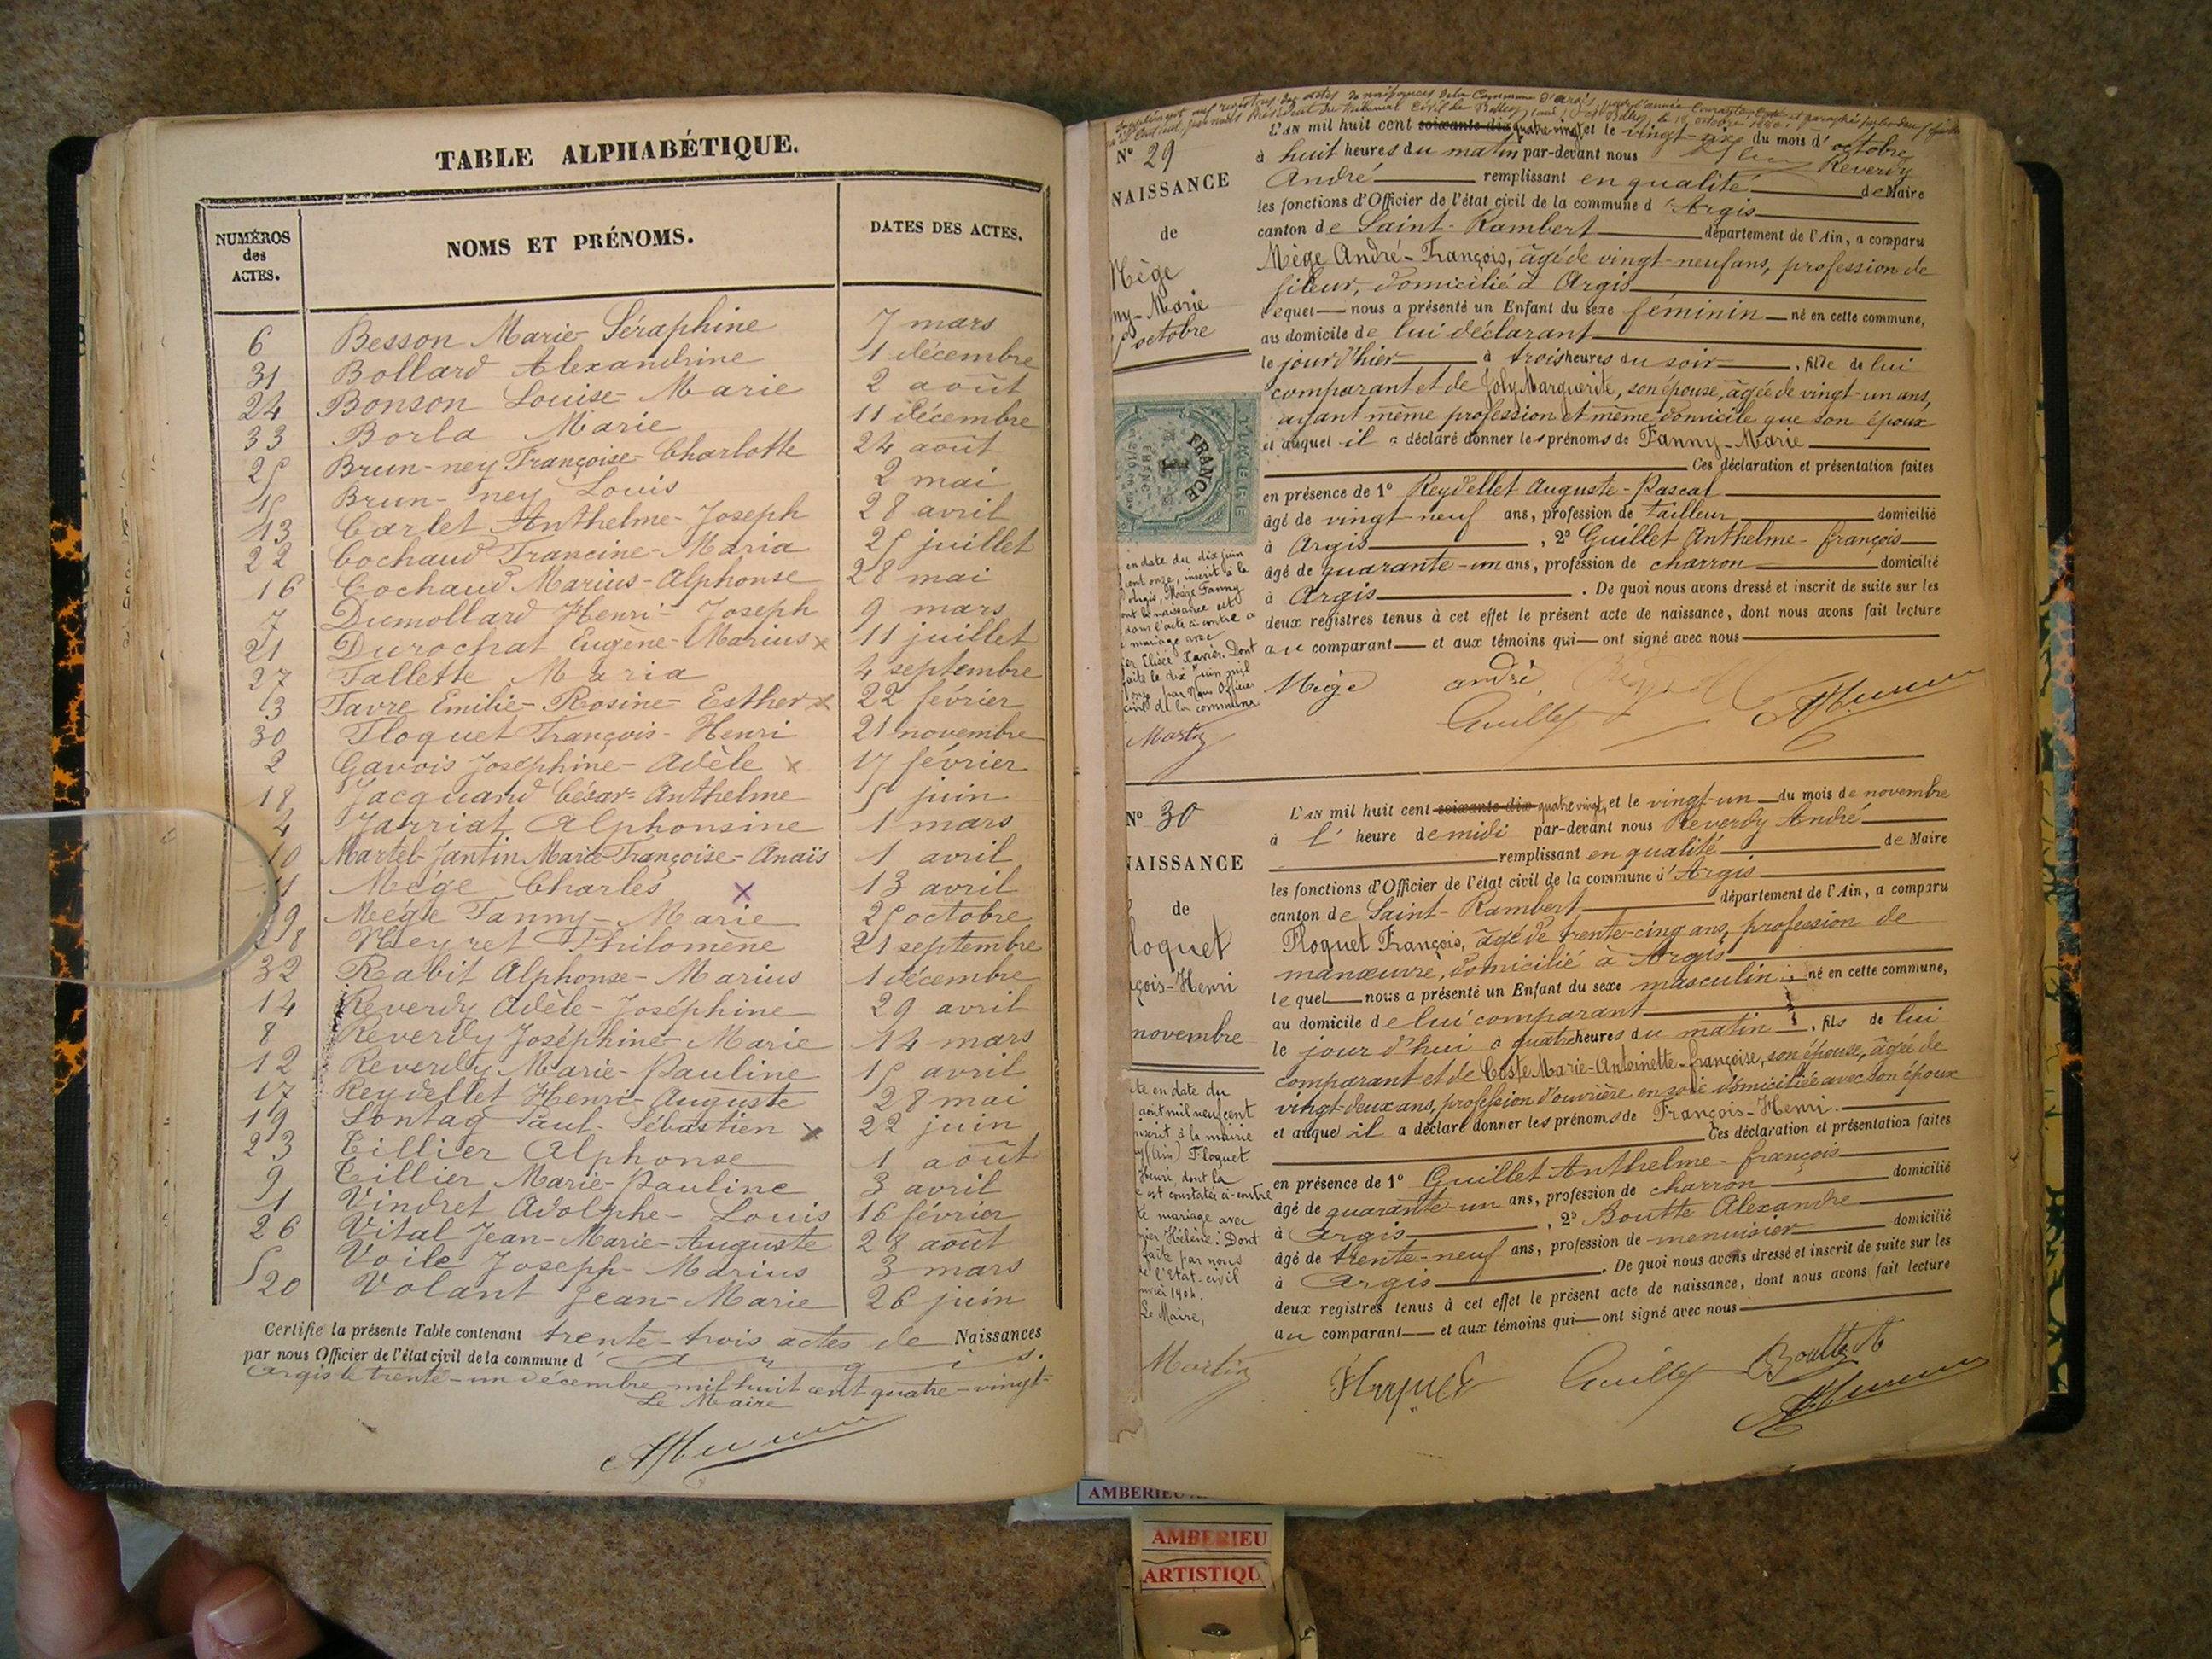 TABLE ALPHABÉTIQUE.
NUMÉROS des ACTES. NOMS ET PRÉNOMS. DATES DES ACTES.
6 Besson Marie-Séraphine 7 mars
31 Bollard Alexandrine 1 décembre
24 Bonson Louise-Marie 2 août
33 Borla Marie 11 décembre
25 Brun-ney Françoise-Charlotte 24 août
15 Brun-ney Louis 2 mai
13 Carlet Anthelme-Joseph 28 avril
22 Cochaud Francine-Maria 25 juillet
16 Cochaud Marius-Alphonse 28 mai
7 Dumollard Henri-Joseph 9 mars
21 Durochat Eugène-Marius x 11 juillet
27 Fallette Maria 4 septembre
3 Favre Emilie-Rosine-Esther x 22 février
30 Floquet François-Henri 21 novembre
2 Gavois Joséphine-Adèle x 17 février
18 Jacquand César-Anthelme 5 juin
4 Jarriat Alphonsine 1 mars
10 Martel-Jantin Marie-Françoise-Anaïs 1 avril
11 Mège Charles x 13 avril
29 Mège Fanny-Marie 25 octobre
28 Neyret Philomène 21 septembre
32 Rabit Alphonse-Marius 1 décembre
14 Reverdy Adèle-Joséphine 29 avril
8 Reverdy Joséphine-Marie 14 mars
12 Reverdy Marie-Pauline 15 avril
17 Reydellet Henri-Auguste 28 mai
19 Sontag Paul-Sébastien x 22 juin
23 Tillier Alphonse 1 août
9 Tillier Marie-Pauline 3 avril
1 Vindret Adolphe-Louis 16 février
26 Vital Jean-Marie-Auguste 28 août
5 Voile Joseph-Marius 3 mars
20 Volant Jean-Marie 26 juin
Certifie la présente Table contenant trente-trois actes de Naissances
par nous Officier de l'état civil de la commune d'Argis.
Argis le trente-un décembre mil huit cent quatre-vingt-
Le Maire
N° 29
NAISSANCE
de
Mège
ny-Marie
octobre
L'AN mil huit cent soixante-dix quatre-vingt et le vingt-six du mois d'octobre
à huit heures du matin par-devant nous Reverdy
André remplissant en qualité de Maire
les fonctions d'Officier de l'état civil de la commune d'Argis
canton de Saint-Rambert département de l'Ain, a comparu
Mège André-François, âgé de vingt-neuf ans, profession de
fileur, domicilié à Argis
lequel nous a présenté un Enfant du sexe féminin né en cette commune,
au domicile de lui déclarant
le jour d'hier à trois heures du soir, fille de lui
comparant et de Joly Marguerite, son épouse, âgée de vingt-un ans,
ayant même profession et même domicile que son époux
et auquel il a déclaré donner les prénoms de Fanny-Marie
Ces déclaration et présentation faites
en présence de 1° Reydellet Auguste-Pascal
âgé de vingt neuf ans, profession de tailleur domicilié
à Argis, 2° Guillet Anthelme-françois
âgé de quarante-un ans, profession de charron domicilié
à Argis. De quoi nous avons dressé et inscrit de suite sur les
deux registres tenus à cet effet le présent acte de naissance, dont nous avons fait lecture
au comparant et aux témoins qui ont signé avec nous
TIMBRE
FRANCE
1
FRANC
en date du dix juin
cent onze, inscrit à la
Argis, Mège Fanny
ont la naissance est
dans l'acte ci-contre a
mariage avec
Elisée Xavier. Dont
faite le dix juin mil
onze par Nous Officier
civil de la commune
Martin
Mège andré
Guillet
N° 30
NAISSANCE
de
loquet
çois-Henri
novembre
L'AN mil huit cent soixante-dix quatre vingt, et le vingt-un du mois de novembre
à l'heure de midi par-devant nous Reverdy André
remplissant en qualité de Maire
les fonctions d'Officier de l'état civil de la commune d'Argis
canton de Saint-Rambert département de l'Ain, a comparu
Floquet François, âgé de trente-cinq ans, profession de
manœuvre, domicilié à Argis
lequel nous a présenté un Enfant du sexe masculin né en cette commune,
au domicile de lui comparant
le jour d'hui à quatre heures du matin, fils de lui
comparant et de Coste Marie-Antoinette-françoise, son épouse, âgée de
vingt-deux ans, profession d'ouvrière en soie domiciliée avec son époux
et auquel il a déclaré donner les prénoms de François-Henri.
Ces déclaration et présentation faites
en présence de 1° Guillet Anthelme-françois
âgé de quarante-un ans, profession de charron domicilié
à Argis, 2° Boutte Alexandre
âgé de trente-neuf ans, profession de menuisier domicilié
à Argis. De quoi nous avons dressé et inscrit de suite sur les
deux registres tenus à cet effet le présent acte de naissance, dont nous avons fait lecture
au comparant et aux témoins qui ont signé avec nous
te en date du
août mil neuf cent
inscrit à la mairie
(Ain) Floquet
Henri, dont la
est constatée ci-contre
mariage avec
Hélène. Dont
faite par nous
l'Etat-civil
Le Maire,
Martin
Floquet Guillet Boutte A
AMBERIEU
AMBERIEU
ARTISTIQU